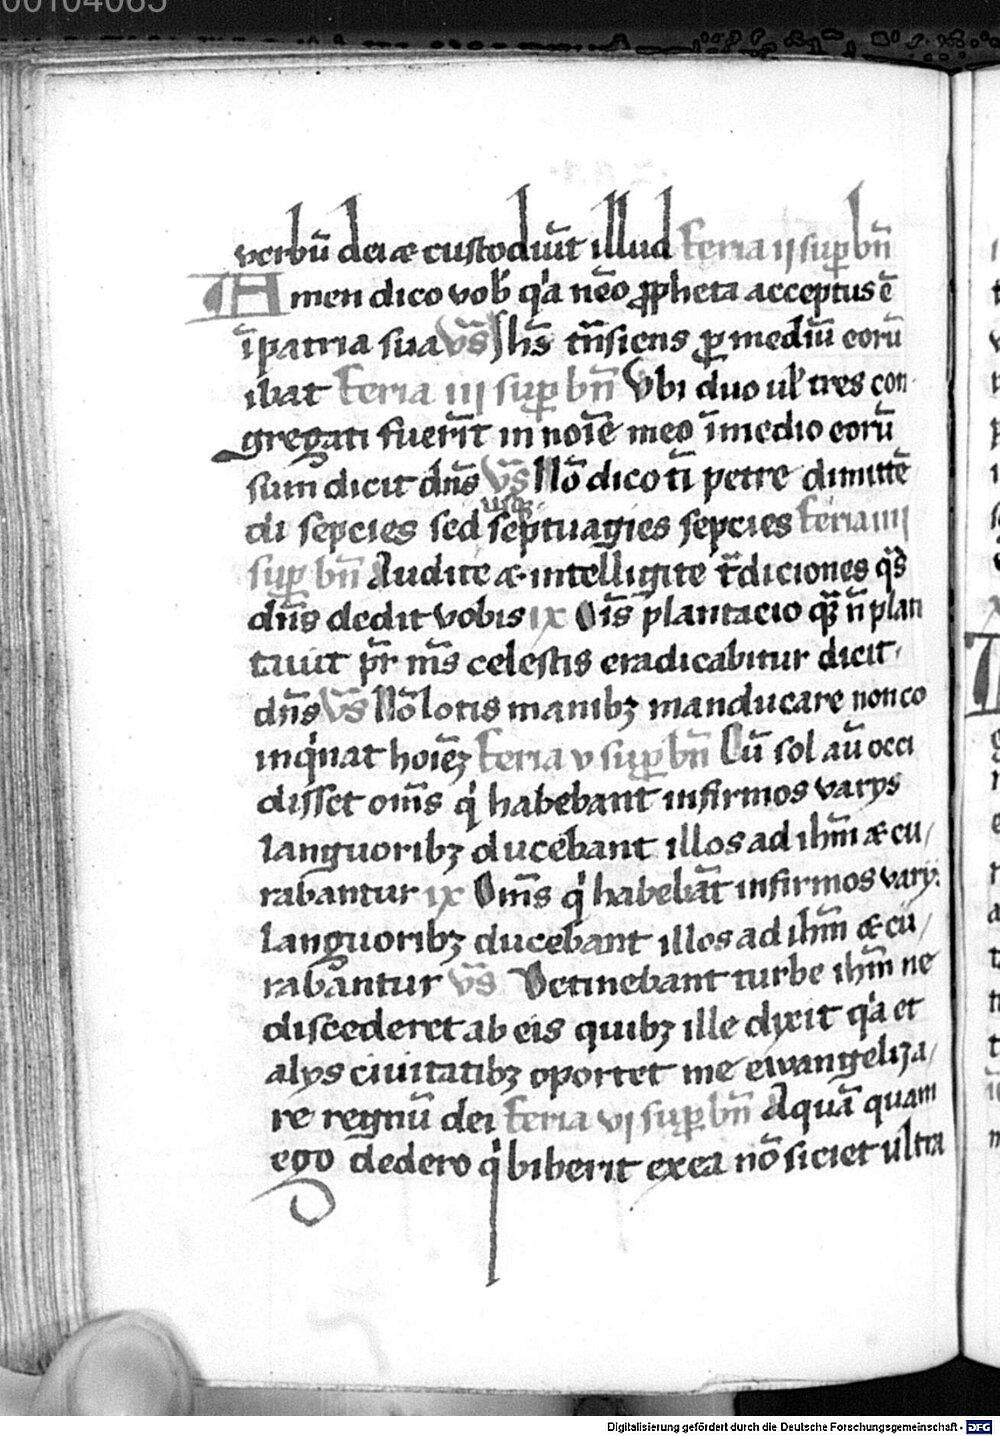 00104065
verbū dei æ custodiūt illud feria ij suꝑ bn̄
Amen dico vob qͥa nēo ꝓpheta acceptus ē
ī patria sua vs̄ Ihs̄ tn̄siens ꝑ mediū eorū
ibat feria iij suꝑ bn̄ Vbi duo ul tres con
gregati fuerīt in noīe meo ī medio eorū
sum dicit dn̄s vs̄ Nō dico ti petre dimittē
di sepcies sed usqꝫ septuagies sepcies feria iiij
suꝑ bn̄ Audite æ intelligite tͣdiciones qͣs
dn̄s dedit vobis ix Oīs plantacio qͣꝫ n̄ plan
tauit pr̄ ms̄ celestis eradicabitur dicit
dn̄s vs̄ Nō lotis manibꝫ manducare non co
inqͥnat hoīeꝫ feria v suꝑ bn̄ Cū sol aū occi
disset om̄s qͥ habebant infirmos varys
languoribꝫ ducebant illos ad ihm̄ æ cu/
rabantur ix Om̄s qͥ habebāt infirmos vary:
languoribꝫ ducebant illos ad ihm̄ æ cu/
rabantur vs̄ Detinebant turbe ihm̄ ne
discederet ab eis quibꝫ ille dyxit qͥa et
alys ciuitatibꝫ oportet me ewangeliza/
re regnū dei feria vj suꝑ bn̄ Aquā quam
ego dedero qͥ biberit ex ea nō siciet ultra
Digitalisierung gefördert durch die Deutsche Forschungsgemeinschaft - DFG